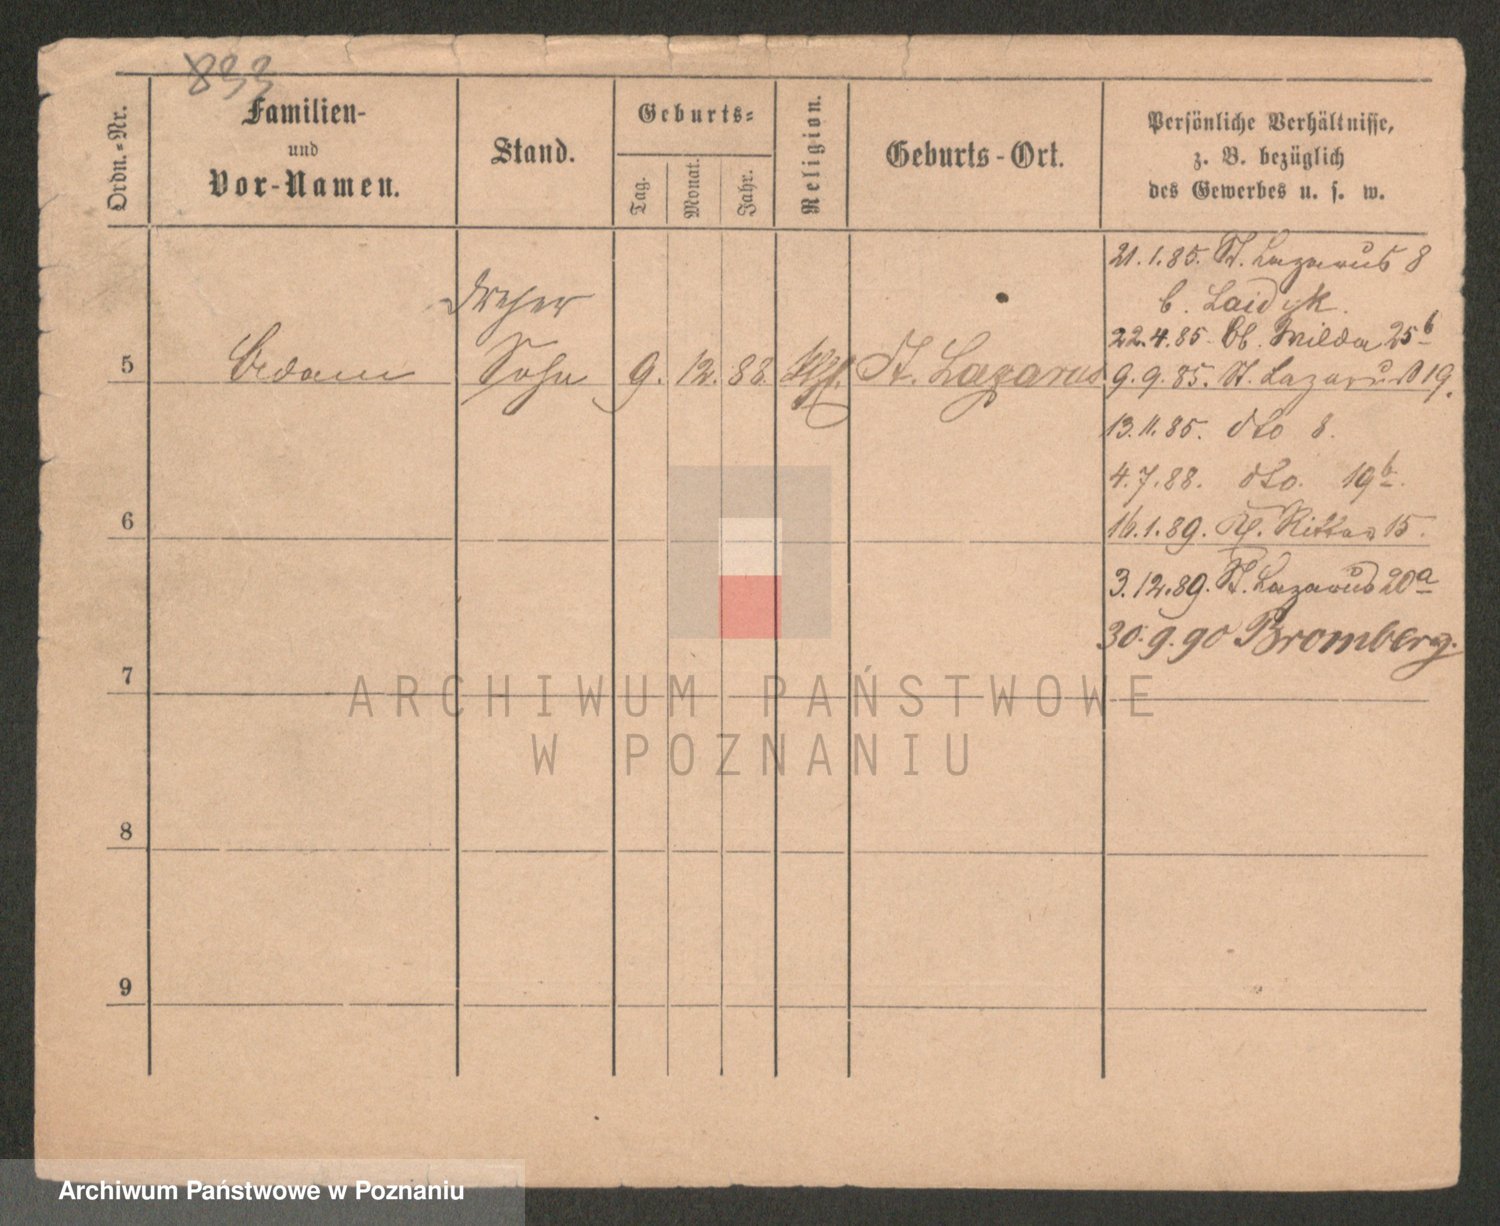 833
Ordn.-Nr.
Familien-
und
Vor-Namen.
Stand.
Geburts-
Tag.
Monat.
Jahr.
Religion.
Geburts-Ort.
Persönliche Verhältnisse,
z. B. bezüglich
des Gewerbes u. s. w.
21.1.85. St. Lazarus 8
b. Laidyk.
22.4.85. Ob. Wilda 25b
Dreher
5 Adam Sohn 9. 12. 88. kath. St. Lazarus 9.9.85. St. Lazarus 19.
13.11.85. dto 8.
4.7.88. dto. 19b.
6 16.1.89. Kl. Ritter 15.
3.12.89. St. Lazarus 20a
30.9.90 Bromberg.
7
ARCHIWUM PAŃSTWOWE
W POZNANIU
8
9
Archiwum Państwowe w Poznaniu